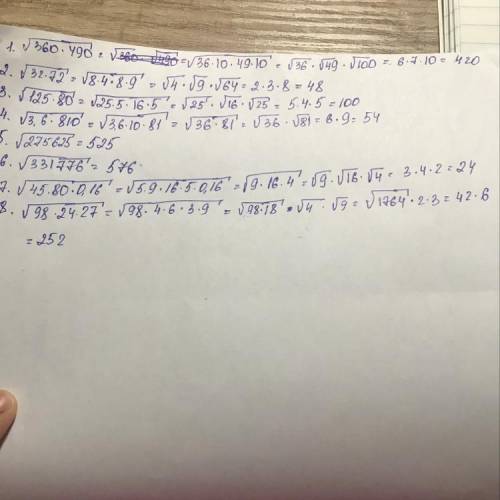 1. √360·490 = √360·√490 = √36·10·49·10 = √36·√49·√100 = 6·7·10 = 420
2. √32·72 = √8·4·8·9 = √4·√9·√64 = 2·3·8 = 48
3. √125·80 = √25·5·16·5 = √25·√16·√25 = 5·4·5 = 100
4. √3,6·810 = √3,6·10·81 = √36·81 = √36·√81 = 6·9 = 54
5. √275625 = 525
6. √331776 = 576
7. √45·80·0,16 = √5·9·16·5·0,16 = √9·16·4 = √9·√16·√4 = 3·4·2 = 24
8. √98·24·27 = √98·4·6·3·9 = √98·18·√4·√9 = √1764·2·3 = 42·6
= 252